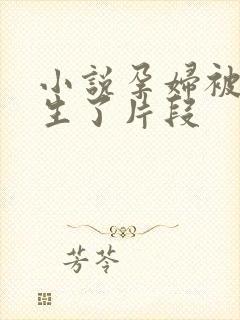 小説孕婦被
生了片段
芳苓